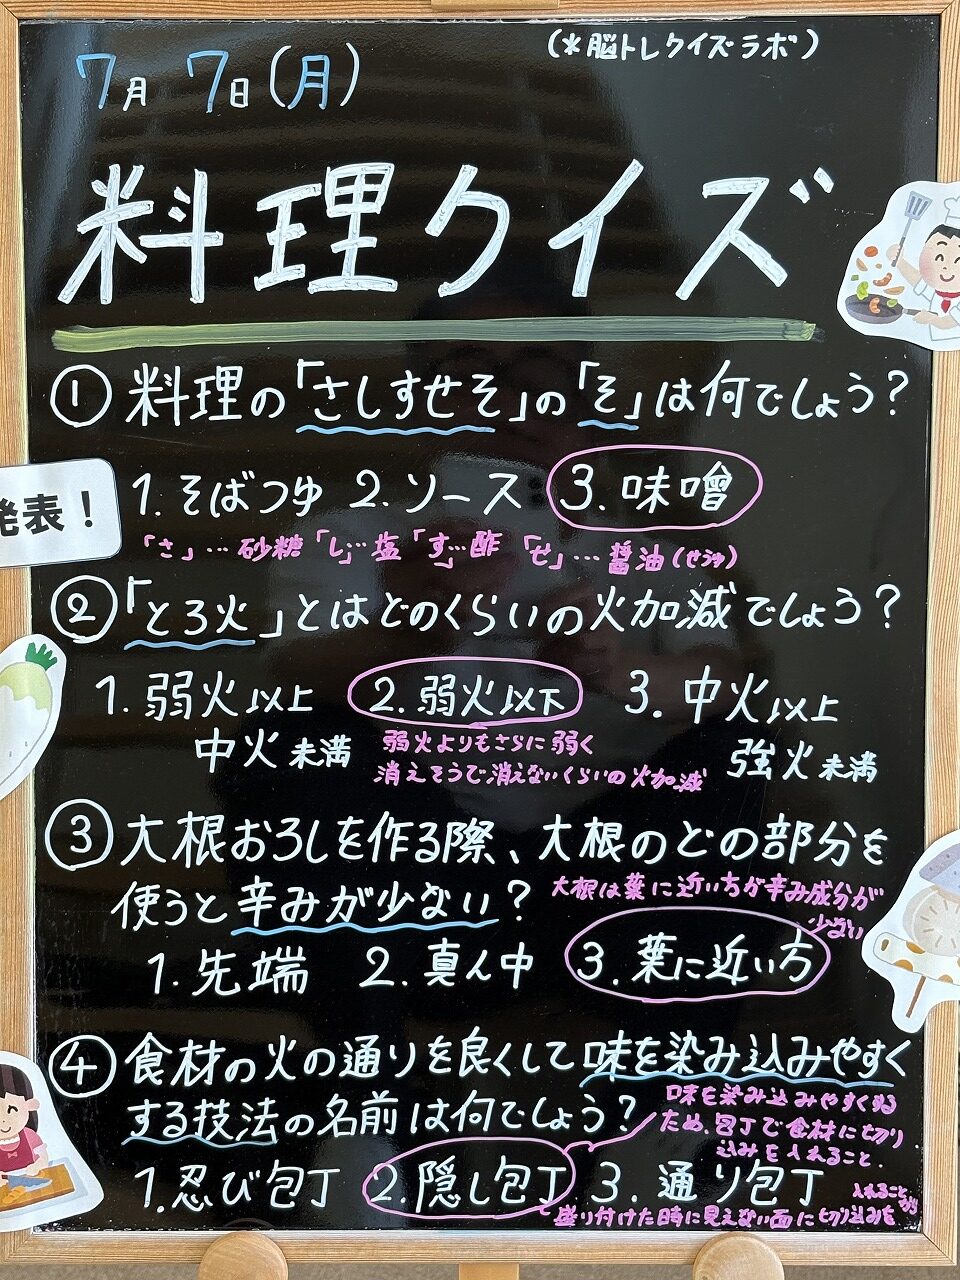 (*脳トレクイズラボ)
7月7日(月)
料理クイズ
① 料理の「さしすせそ」の「そ」は何でしょう?
発表!
1.そばつゆ 2.ソース 3.味噌
「さ」…砂糖「し」…塩「す」…酢「せ」…醤油(せうゆ)
②「とろ火」とはどのくらいの火加減でしょう?
1.弱火以上 2.弱火以下 3.中火以上
中火未満 強火未満
弱火よりもさらに弱く
消えそうで消えないくらいの火加減
③ 大根おろしを作る際、大根のどの部分を
使うと辛みが少ない?
大根は葉に近い方が辛み成分が
少ない
1.先端 2.真ん中 3.葉に近い方
④ 食材の火の通りを良くして味を染み込みやすく
する技法の名前は何でしょう?
味を染み込みやすくする
ため、包丁で食材に切り
込みを入れること。
1.忍び包丁 2.隠し包丁 3.通り包丁
盛り付けた時に見えない面に切り込みを
入れることから